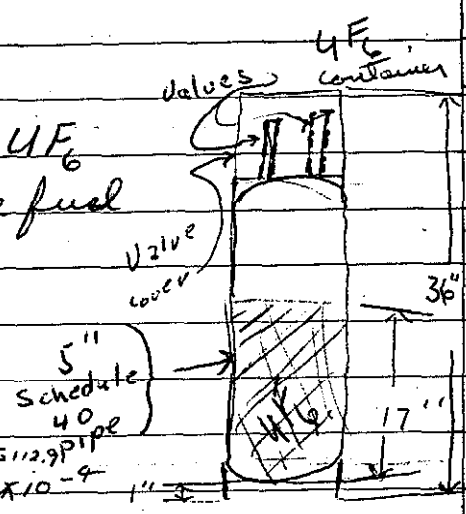 UF6
container
valves
UF6
fuel
Valve
cover
36"
5"
Schedule
40
pipe
UF6
17"
x10-4
1"